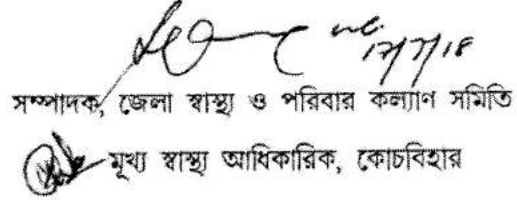 17/7/18
সম্পাদক, জেলা স্বাস্থ্য ও পরিবার কল্যাণ সমিতি
মূখ্য স্বাস্থ্য আধিকারিক, কোচবিহার